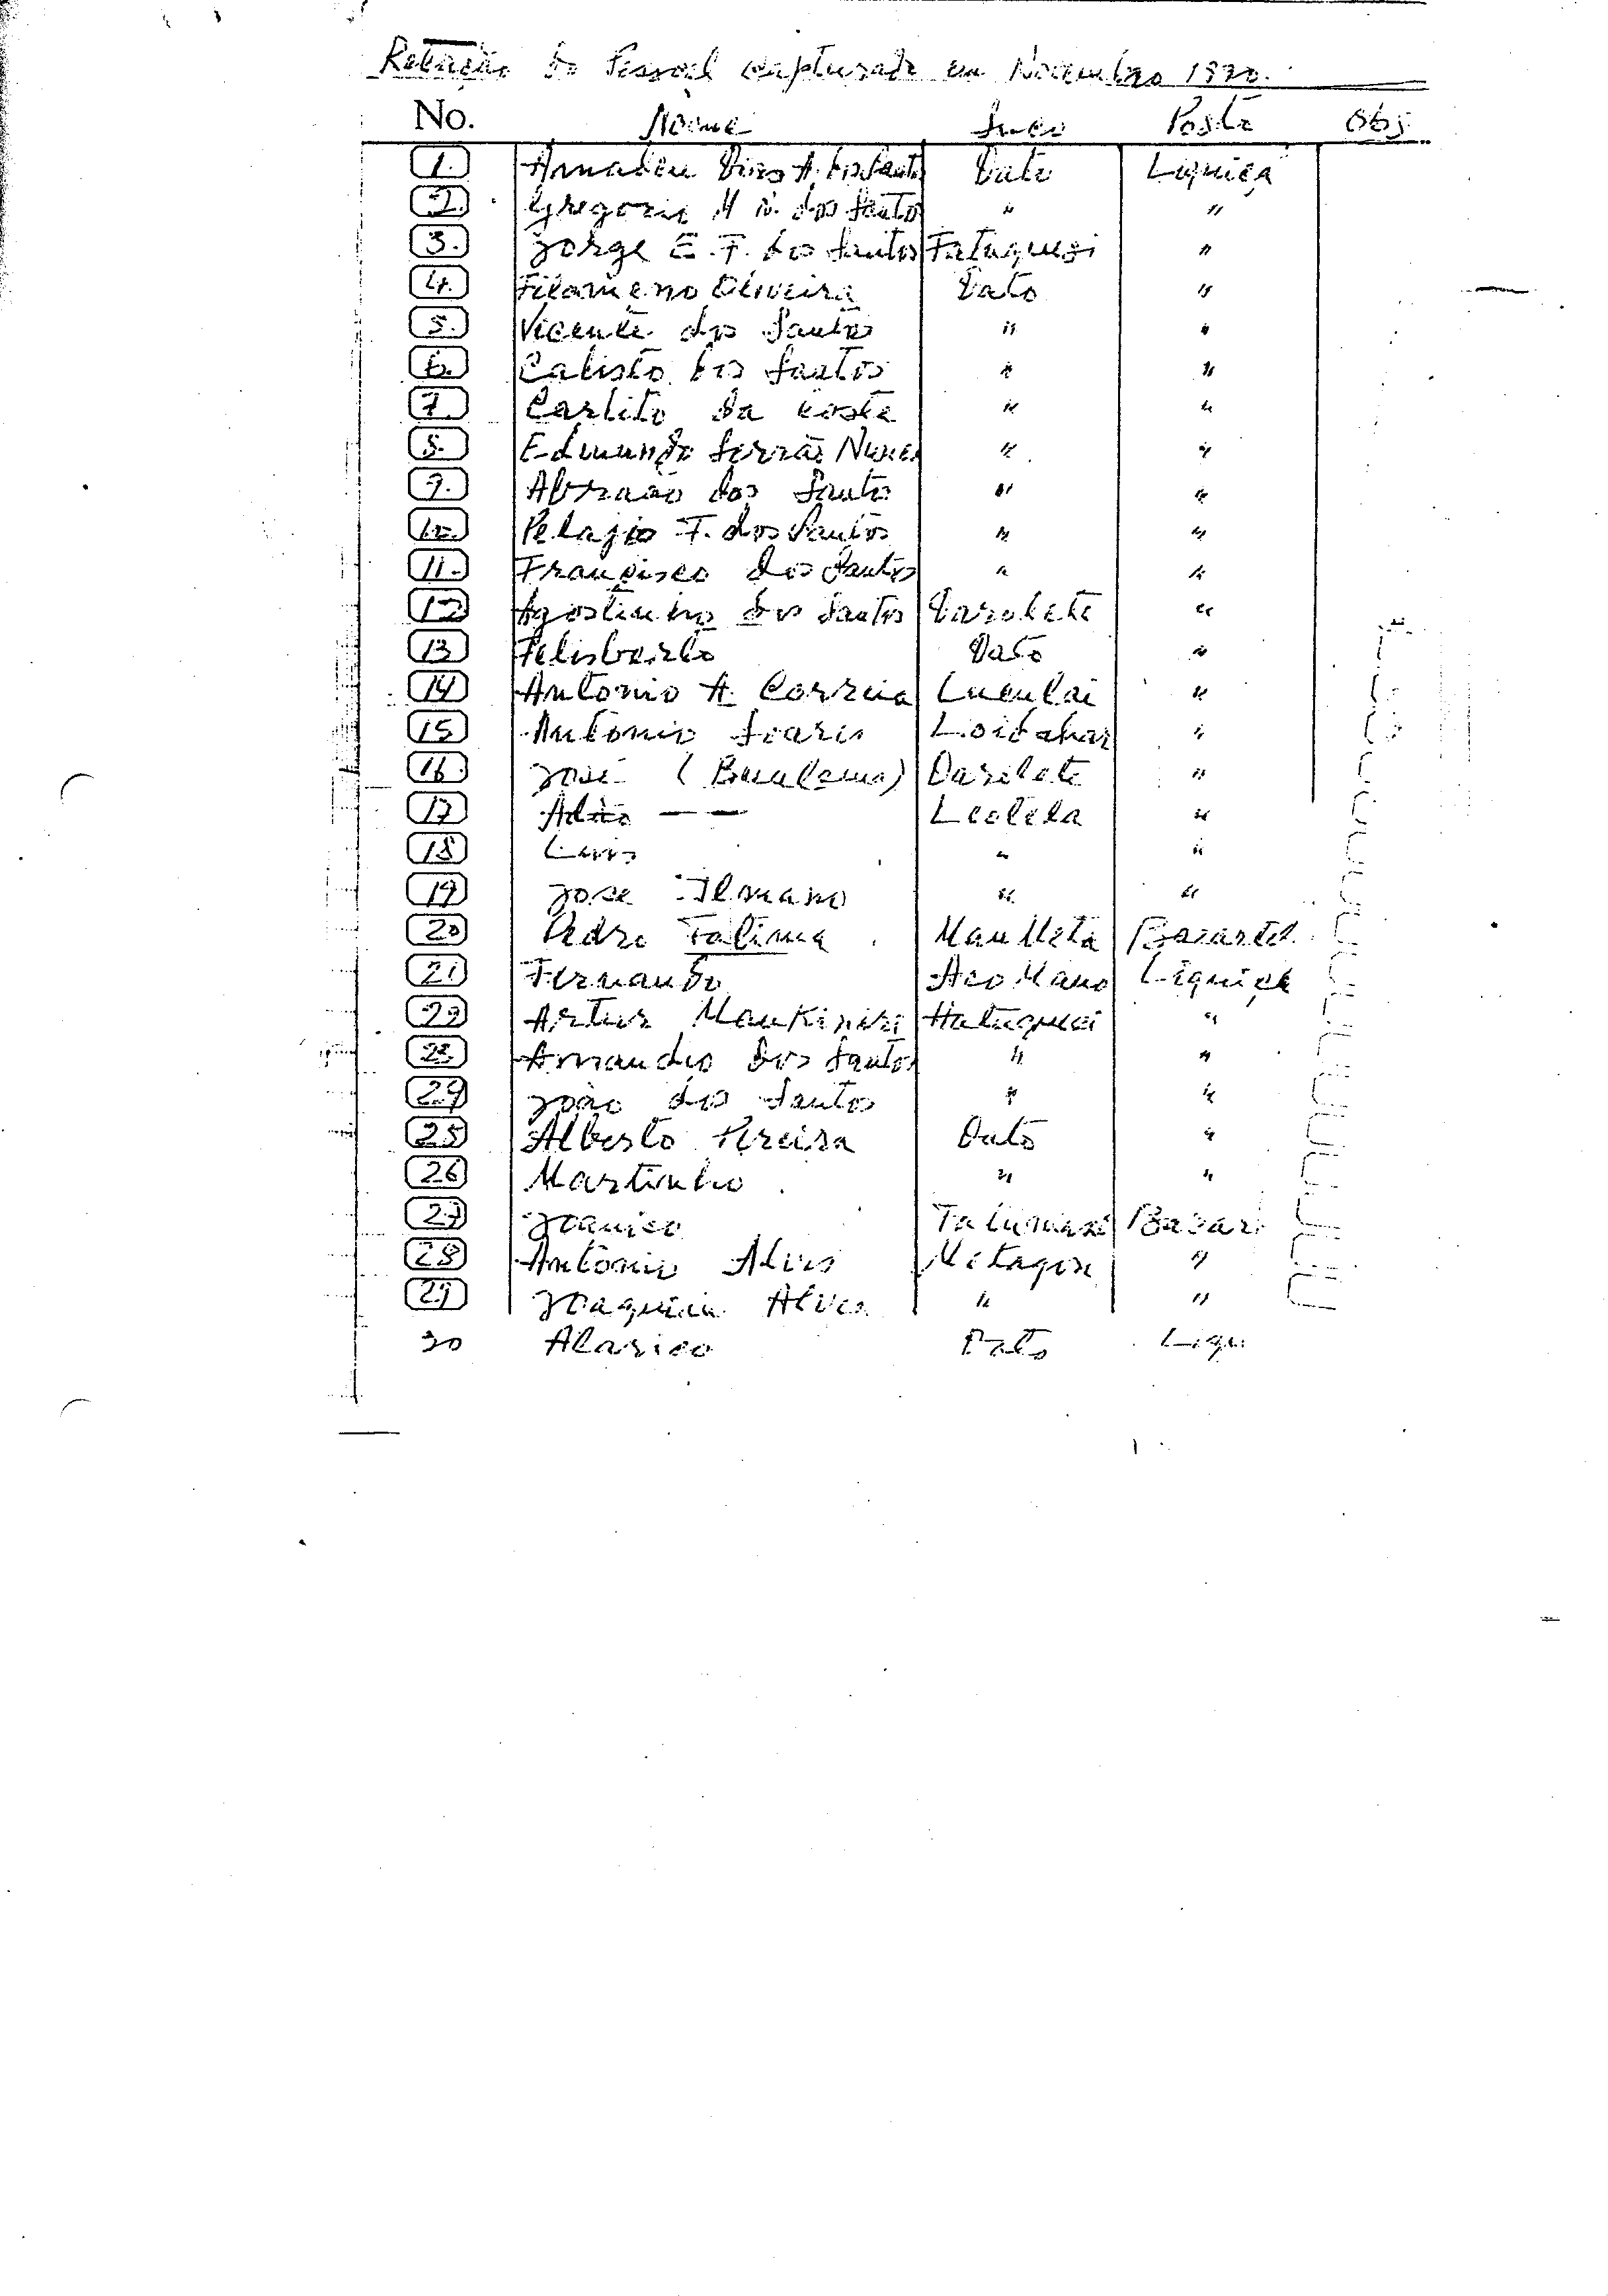 Relação do Pessoal capturado em Novembro
No. Nome Suco Posto Obs
1. dos Santos Dato Liquiça
2. Gregorio M dos Santos " "
3. Jorge E. F. dos Santos Fatuquesi "
4. Filomeno Oliveira Dato "
5. Vicente dos Santos " "
6. Calisto dos Santos " "
7. Carlito da Costa " "
8. Edmundo Serrão Nunes " "
9. Abraão dos Santos " "
10. Pelagio F. dos Santos " "
11. Francisco dos Santos " "
12 Agostinho dos Santos Darolete "
13 Felisberto Dato "
14 Antonio A. Correia Luculai "
15 Antonio Soares Loidahar "
16. José ( ) Darolete "
17 — — Leotela "
18 " "
19 José " "
20 Pedro Fatima Maumeta Bazartet.
21 Fernando Acomano Liquiça
22 Artur Maukinzi Hatuquesi "
23. dos Santos " "
24 João dos Santos " "
25 Alberto Pereira Dato "
26 Martinho " "
27 Bazar
28 Antonio Alves Metagou "
29 Joaquim Alves " "
30 Alarico Dato Liqui